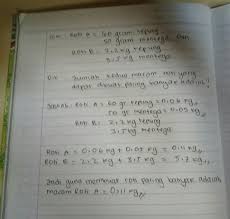 Dik : Roti A = 60 gram tepung
50 gram mentega dan
Roti B = 2,2 kg tepung
3,5 kg mentega
Dit : Jumlah kedua macam roti yang
dapat dibuat paling banyak adalah?
Jawab : Roti A = 60 gr tepung = 0,06 kg
50 gr mentega = 0,05 kg
Roti B : 2,2 kg tepung
3,5 kg mentega
Roti A = 0,06 kg + 0,05 kg = 0,11 kg
Roti B = 2,2 kg + 3,5 kg = 5,7 kg
Jadi guna membuat roti paling banyak adalah
macam Roti A = 0,11 kg